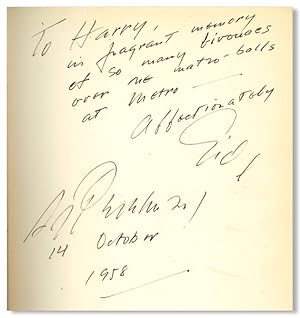 To Harry,
in fragrant memory
of so many bivouacs
over the matzo-balls
at Metro
Affectionately
Sid
14 October
1958